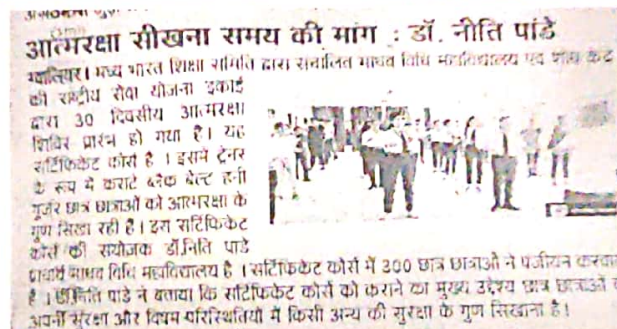 आत्मरक्षा सीखना समय की मांग : डॉ. नीति पांडे
ग्वालियर। मध्य भारत शिक्षा समिति द्वारा संचालित माधव विधि महाविद्यालय एवं शोध केंद्र
की राष्ट्रीय सेवा योजना इकाई
द्वारा 30 दिवसीय आत्मरक्षा
शिविर प्रारंभ हो गया है। यह
सर्टिफिकेट कोर्स है । इसमें ट्रेनर
के रूप में कराटे ब्लैक बेल्ट हनी
गुर्जर छात्र छात्राओं को आत्मरक्षा के
गुण सिखा रही है। इस सर्टिफिकेट
कोर्स की संयोजक डॉ.निति पांडे
प्राचार्य माधव विधि महाविद्यालय है । सर्टिफिकेट कोर्स में 300 छात्र छात्राओं ने पंजीयन करवाया
है । डॉ.निति पांडे ने बताया कि सर्टिफिकेट कोर्स को कराने का मुख्य उद्देश्य छात्र छात्राओं
अपनी सुरक्षा और विषम परिस्थितियों में किसी अन्य की सुरक्षा के गुण सिखाना है।